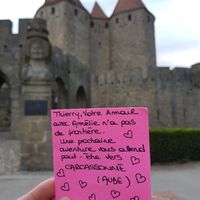 Thierry, Votre Amour
avec Amélie n'a pas
de frontière.
Une prochaine
aventure vous attend
peut-être vers
CARCASSONNE
(AUDE)